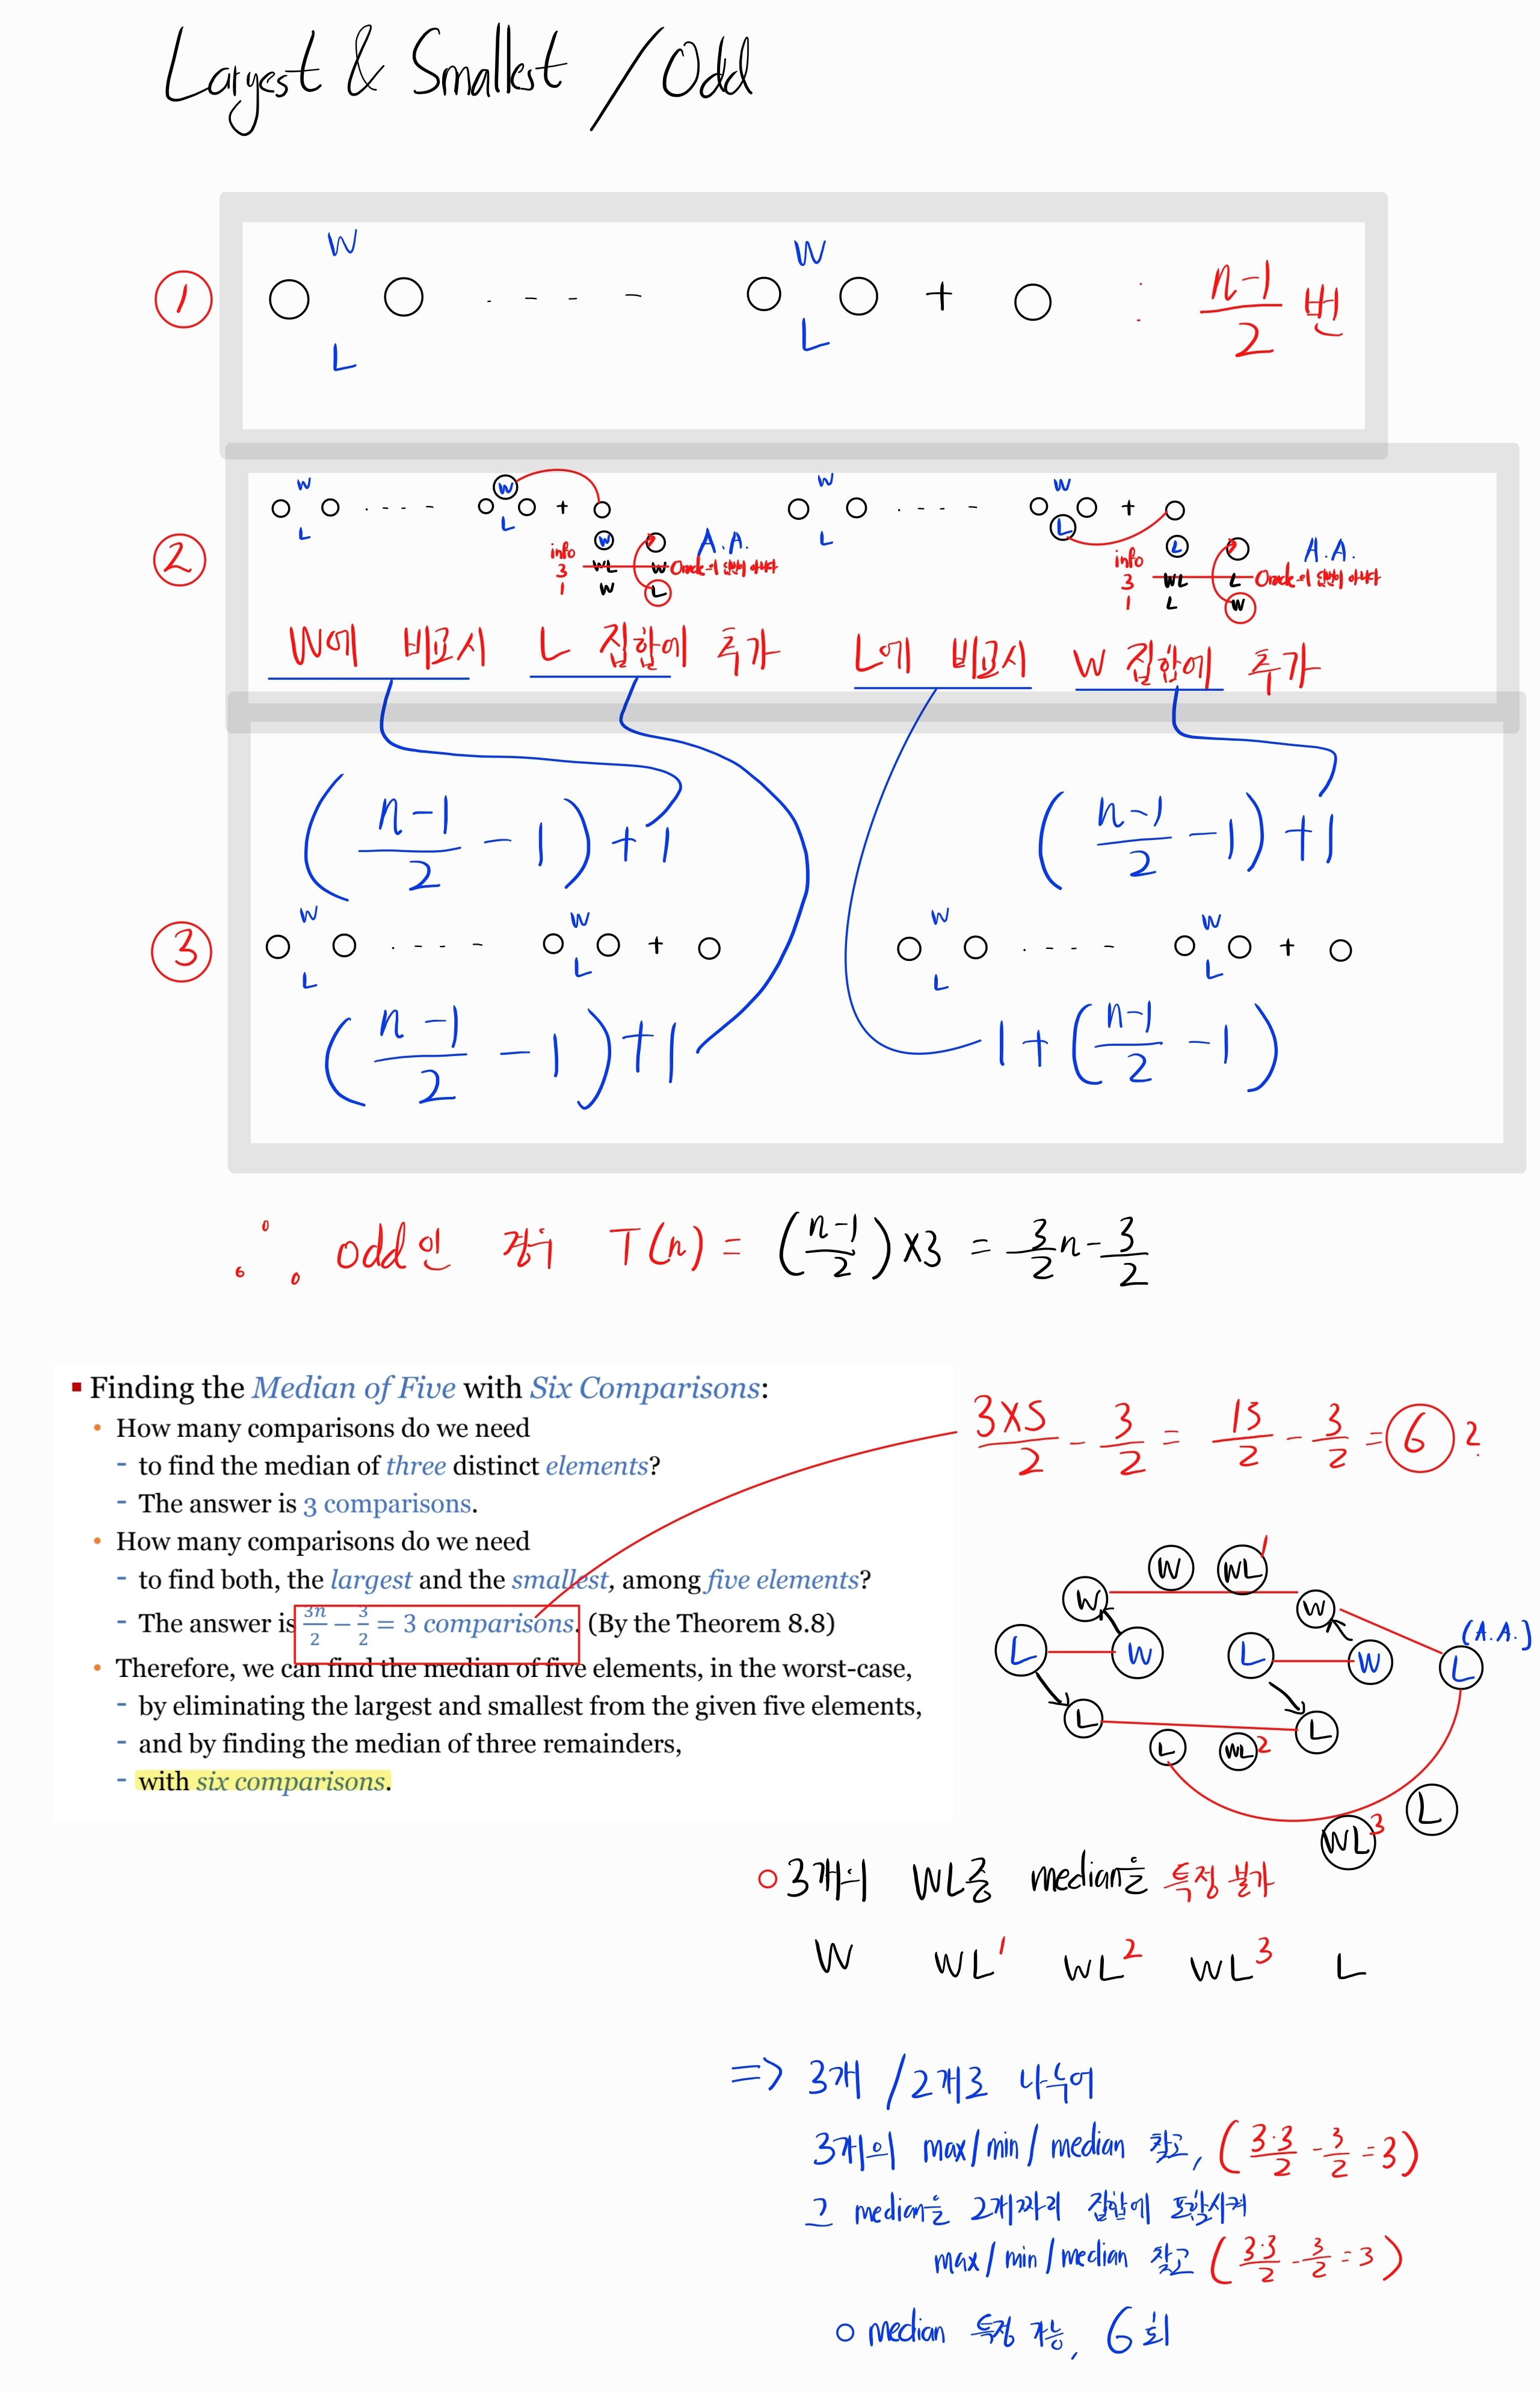 Largest & Smallest / Odd
① W W
L L + : n-1/2 번
② W W + W W +
L L L L
info W ? A.A. info L ? A.A.
3 WL W Oracle의 답변이 아니다 3 WL L Oracle의 답변이 아니다
1 W L 1 L W
W에 비교시 L 집합에 추가 L에 비교시 W 집합에 추가
(n-1/2 - 1) + 1 (n-1/2 - 1) + 1
③ W W + W W +
L L L L
(n-1/2 - 1) + 1 1 + (n-1/2 - 1)
∴ odd인 경우 T(n) = (n-1/2) × 3 = 3/2 n - 3/2
▪ Finding the Median of Five with Six Comparisons:
• How many comparisons do we need
- to find the median of three distinct elements?
- The answer is 3 comparisons.
• How many comparisons do we need
- to find both, the largest and the smallest, among five elements?
- The answer is 3n/2 − 3/2 = 3 comparisons. (By the Theorem 8.8)
• Therefore, we can find the median of five elements, in the worst-case,
- by eliminating the largest and smallest from the given five elements,
- and by finding the median of three remainders,
- with six comparisons.
3×5/2 - 3/2 = 15/2 - 3/2 = 6 ?
W WL 1
W W
L W L W L (A.A.)
L L
L WL 2
WL 3 L
○ 3개의 WL중 median을 특정 불가
W WL 1 WL 2 WL 3 L
=> 3개 / 2개로 나누어
3개의 max / min / median 찾고, (3·3/2 - 3/2 = 3)
그 median을 2개짜리 집합에 포함시켜
max / min / median 찾고 (3·3/2 - 3/2 = 3)
○ median 특정 가능, 6회